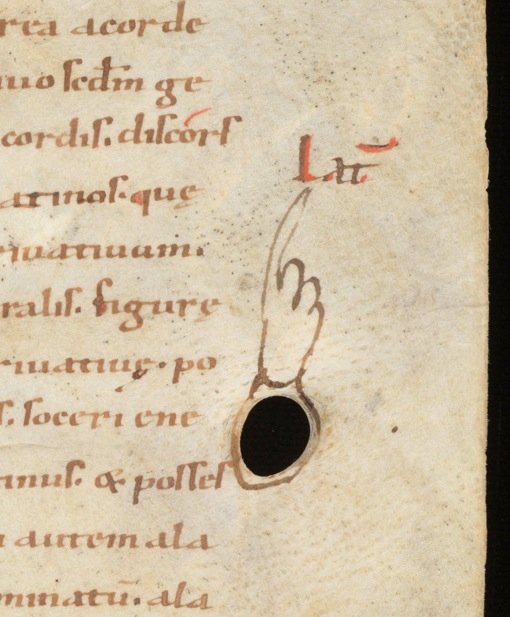 rea acorde
uo scďm ge
cordis. discors
Lat̄
atinos. quę
riuatiuum.
ralis. figurę
riuatiuę. po
s. soceri ene
tinus. & posses
autem ala
minatū. ala